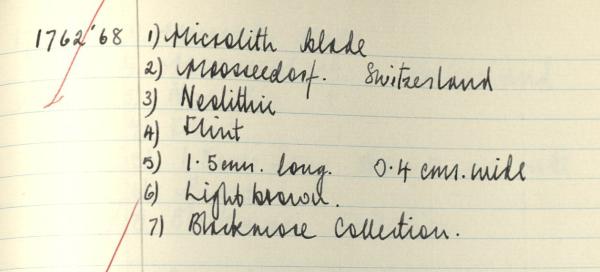 1762'68 1) Microlith blade
2) Moosseedorf. Switzerland
3) Neolithic
4) Flint
5) 1.5cms. long. 0.4 cms. wide
6) Light brown.
7) Blackmore Collection.